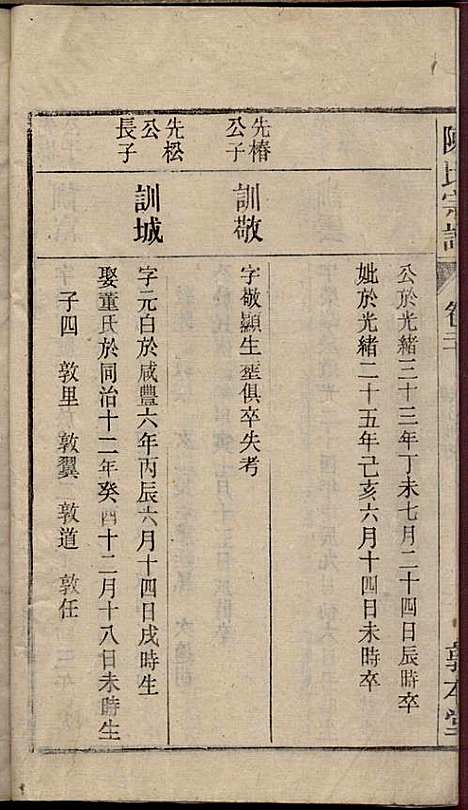 陳氏宗譜
敦本堂
公於光緒三十三年丁未七月二十四日辰時卒
妣於光緒二十五年己亥六月十四日未時卒
先椿
公子
訓敬
字敬顯生塋俱卒失考
先松
公
長子
訓城
字元白於咸豐六年丙辰六月十四日戌時生
娶董氏於同治十二年癸酉十二月十八日未時生
子四 敦里 敦翼 敦道 敦任